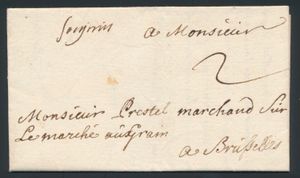 Soignies a Monsieur
2
Monsieur Prestel marchand sur
Le marché aux grain
a Brusselles